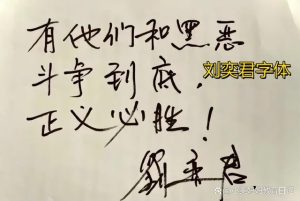 有他们和黑恶
斗争到底,
正义必胜!
刘奕君字体
劉奕君